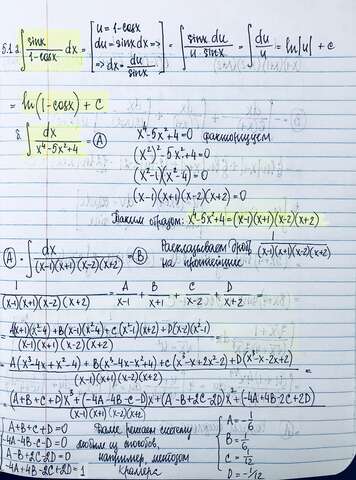 5.1 a. ∫ sinx/(1-cosx) dx = [u = 1-cosx
du = sinx dx =>
=> dx = du/sinx] = ∫ sinx du/(u·sinx) = ∫ du/u = ln|u| + c
= ln(1-cosx) + c
б. ∫ dx/(x⁴-5x²+4) = Ⓐ x⁴-5x²+4=0 факторизуем
(x²)²-5x²+4=0
(x²-1)(x²-4)=0
(x-1)(x+1)(x-2)(x+2)=0
Таким образом: x⁴-5x²+4=(x-1)(x+1)(x-2)(x+2)
Ⓐ = ∫ dx/((x-1)(x+1)(x-2)(x+2)) = Ⓑ Раскладываем дробь 1/((x-1)(x+1)(x-2)(x+2))
на простейшие
1/((x-1)(x+1)(x-2)(x+2)) = A/(x-1) + B/(x+1) + C/(x-2) + D/(x+2) =
= (A(x+1)(x²-4)+B(x-1)(x²-4)+C(x²-1)(x+2)+D(x-2)(x²-1))/((x-1)(x+1)(x-2)(x+2)) =
= (A(x³-4x+x²-4)+B(x³-4x-x²+4)+C(x³-x+2x²-2)+D(x³-x-2x+2))/((x-1)(x+1)(x-2)(x+2)) =
= ((A+B+C+D)x³+(-4A-4B-C-D)x+(A-B+2C-2D)x²+(-4A+4B-2C+2D))/((x-1)(x+1)(x-2)(x+2))
A+B+C+D=0 Далее решаем систему A=-1/6
-4A-4B-C-D=0 любым из способов, B=1/6
A-B+2C-2D=0 например, методом C=1/12
-4A+4B-2C+2D=1 Крамера D=-1/12